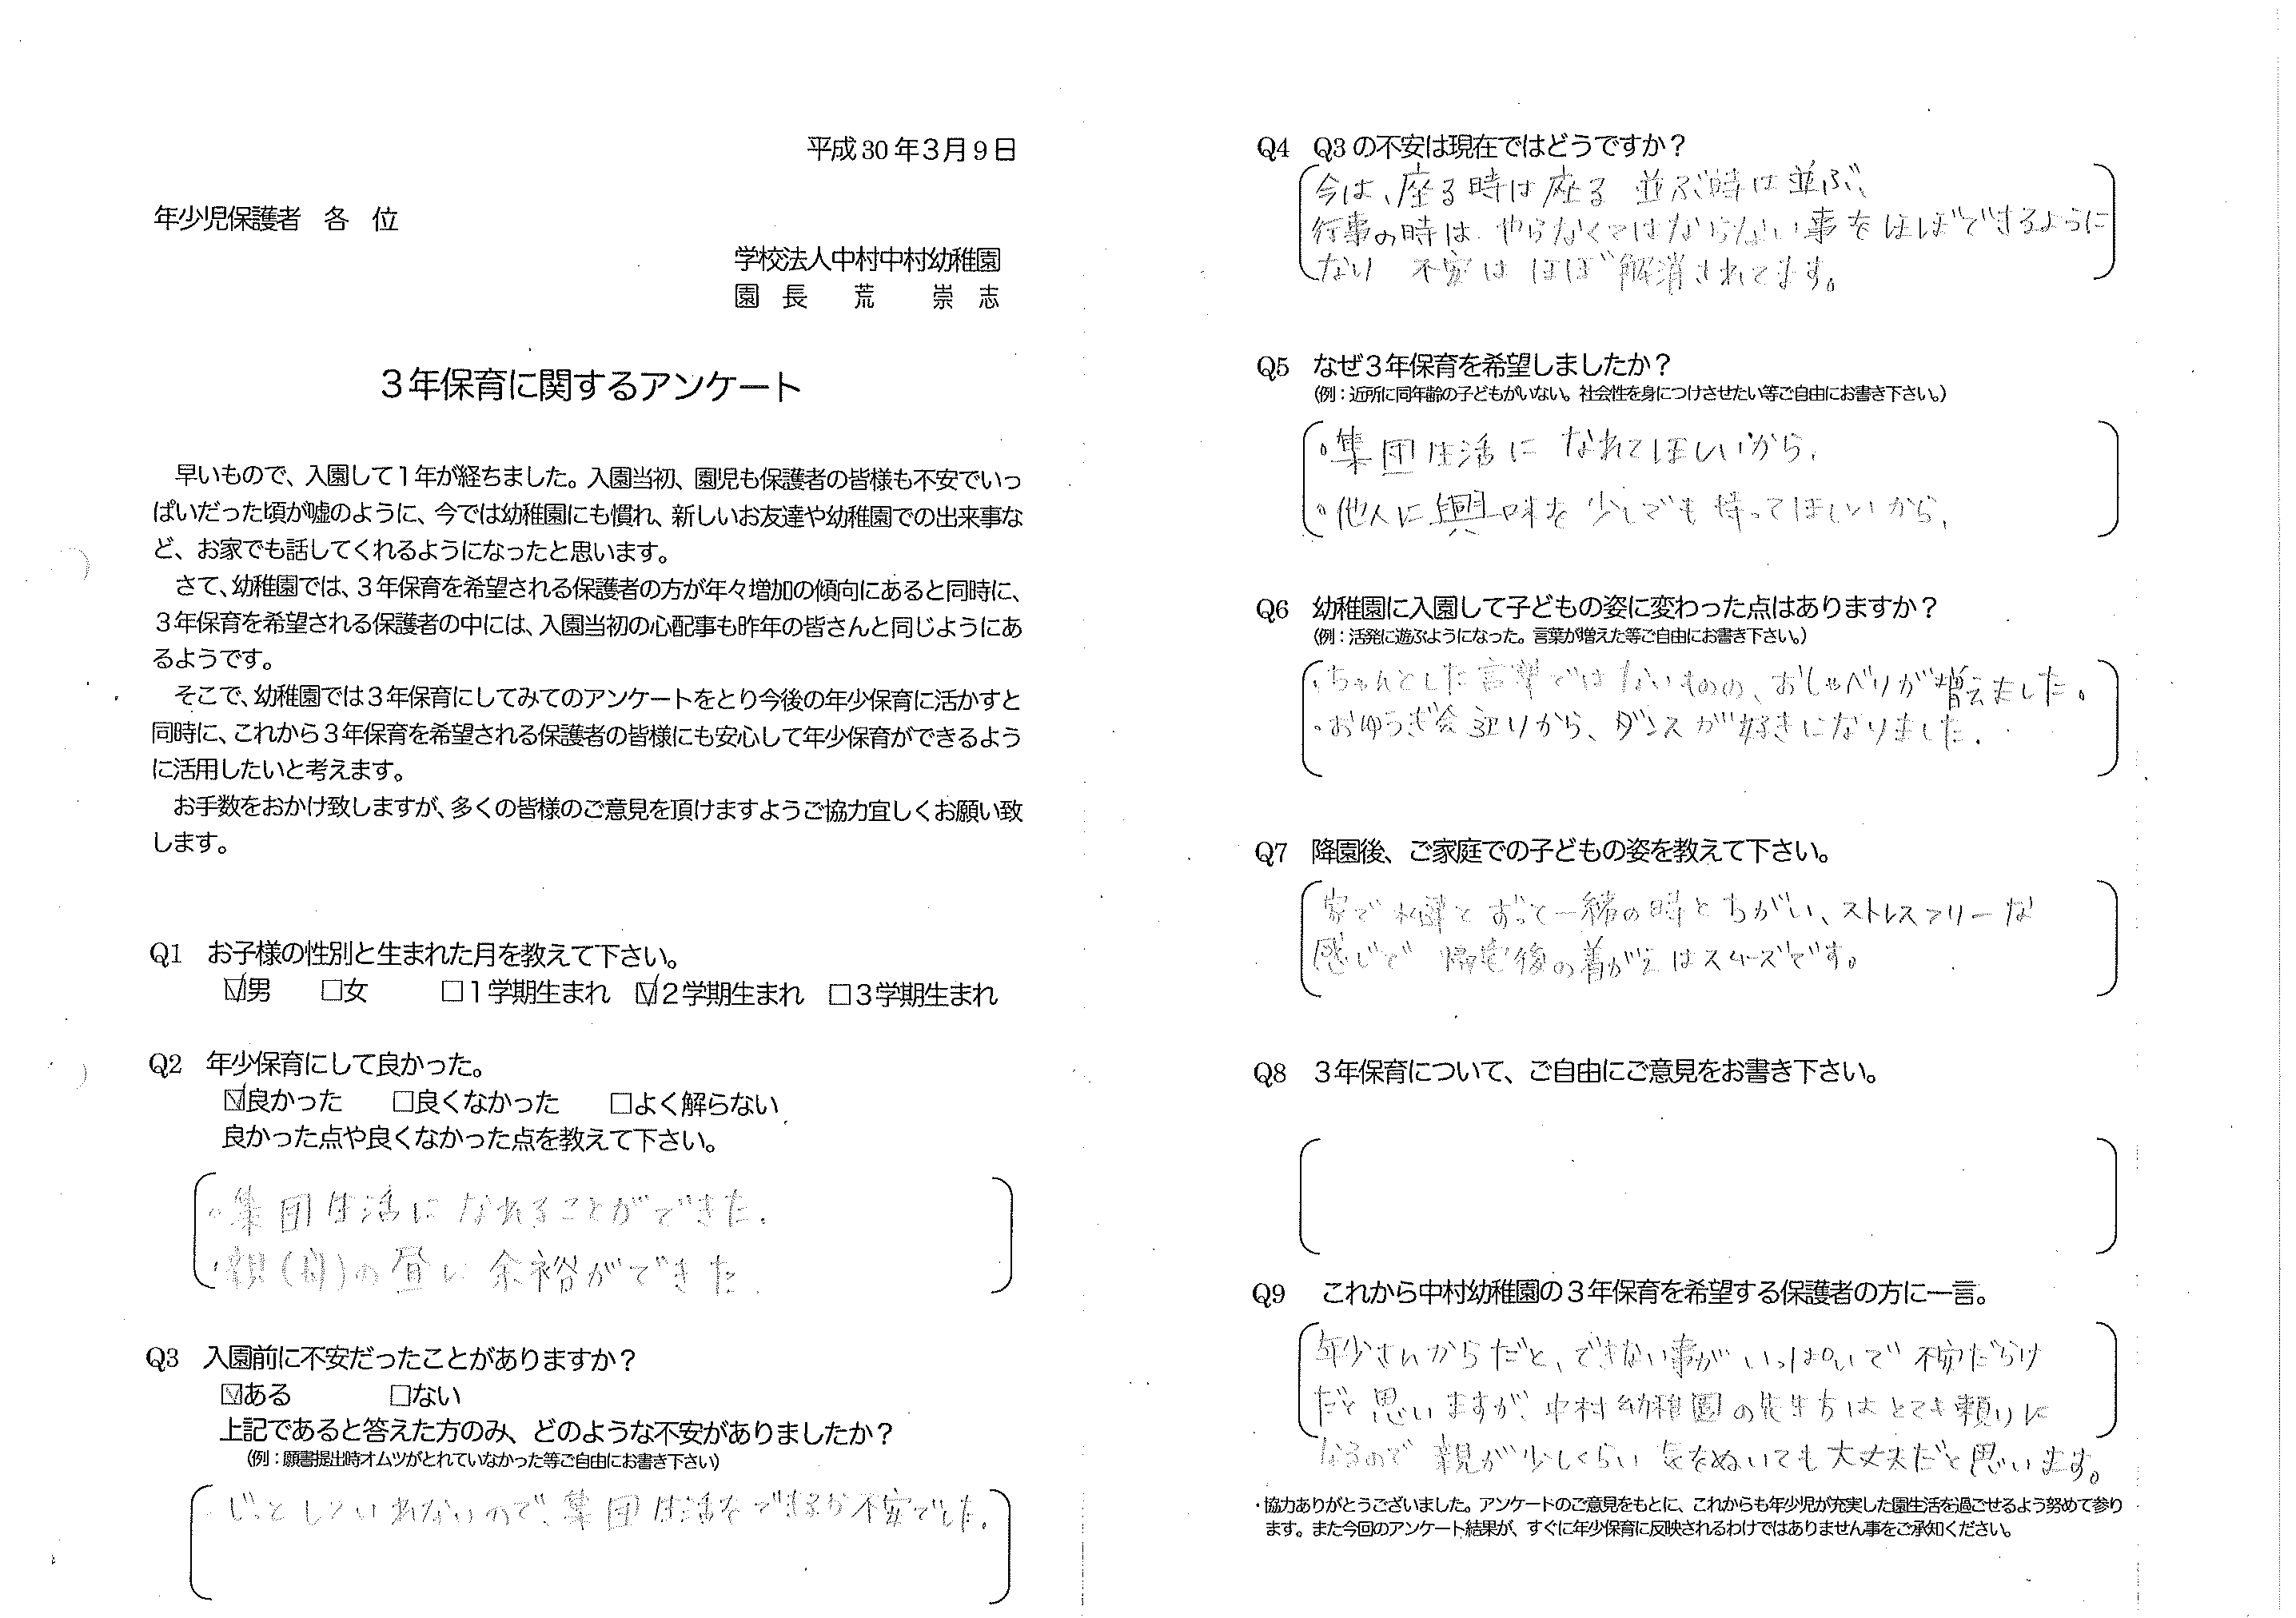 平成30年3月9日
年少児保護者　各　位
学校法人中村中村幼稚園
園　長　荒　崇　志
３年保育に関するアンケート
早いもので、入園して１年が経ちました。入園当初、園児も保護者の皆様も不安でいっ
ぱいだった頃が嘘のように、今では幼稚園にも慣れ、新しいお友達や幼稚園での出来事な
ど、お家でも話してくれるようになったと思います。
さて、幼稚園では、３年保育を希望される保護者の方が年々増加の傾向にあると同時に、
３年保育を希望される保護者の中には、入園当初の心配事も昨年の皆さんと同じようにあ
るようです。
そこで、幼稚園では３年保育にしてみてのアンケートをとり今後の年少保育に活かすと
同時に、これから３年保育を希望される保護者の皆様にも安心して年少保育ができるよう
に活用したいと考えます。
お手数をおかけ致しますが、多くの皆様のご意見を頂けますようご協力宜しくお願い致
します。
Q1　お子様の性別と生まれた月を教えて下さい。
☑男　□女　□１学期生まれ　☑２学期生まれ　□３学期生まれ
Q2　年少保育にして良かった。
☑良かった　□良くなかった　□よく解らない
良かった点や良くなかった点を教えて下さい。
・集団生活になれることができた.
・親(母)の昼に余裕ができた.
Q3　入園前に不安だったことがありますか？
☑ある　□ない
上記であると答えた方のみ、どのような不安がありましたか？
（例：願書提出時オムツがとれていなかった等ご自由にお書き下さい）
じっとしていれないので、集団生活をできるか不安でした.
Q4　Q3の不安は現在ではどうですか？
今は、座る時は座る 並ぶ時は並ぶ、
行事の時は やらなくてはならない事をほぼできるように
なり 不安は ほぼ解消されてます。
Q5　なぜ３年保育を希望しましたか？
（例：近所に同年齢の子どもがいない。社会性を身につけさせたい等ご自由にお書き下さい。）
・集団生活に なれてほしいから.
・他人に興味を少しでも持ってほしいから.
Q6　幼稚園に入園して子どもの姿に変わった点はありますか？
（例：活発に遊ぶようになった。言葉が増えた等ご自由にお書き下さい。）
・ちゃんとした言葉ではないものの、おしゃべりが増えました。
・おゆうぎ会辺りから、ダンスが好きになりました.
Q7　降園後、ご家庭での子どもの姿を教えて下さい。
家で私達とずっと一緒の時とちがい、ストレスフリーな
感じで 帰宅後の着がえはスムーズです。
Q8　３年保育について、ご自由にご意見をお書き下さい。
Q9　これから中村幼稚園の３年保育を希望する保護者の方に一言。
年少さんからだと、できない事がいっぱいで 不安だらけ
だと思いますが、中村幼稚園の先生方はとても頼りに
なるので 親が少しくらい気をぬいても大丈夫だと思います。
・協力ありがとうございました。アンケートのご意見をもとに、これからも年少児が充実した園生活を過ごせるよう努めて参り
ます。また今回のアンケート結果が、すぐに年少保育に反映されるわけではありません事をご承知ください。